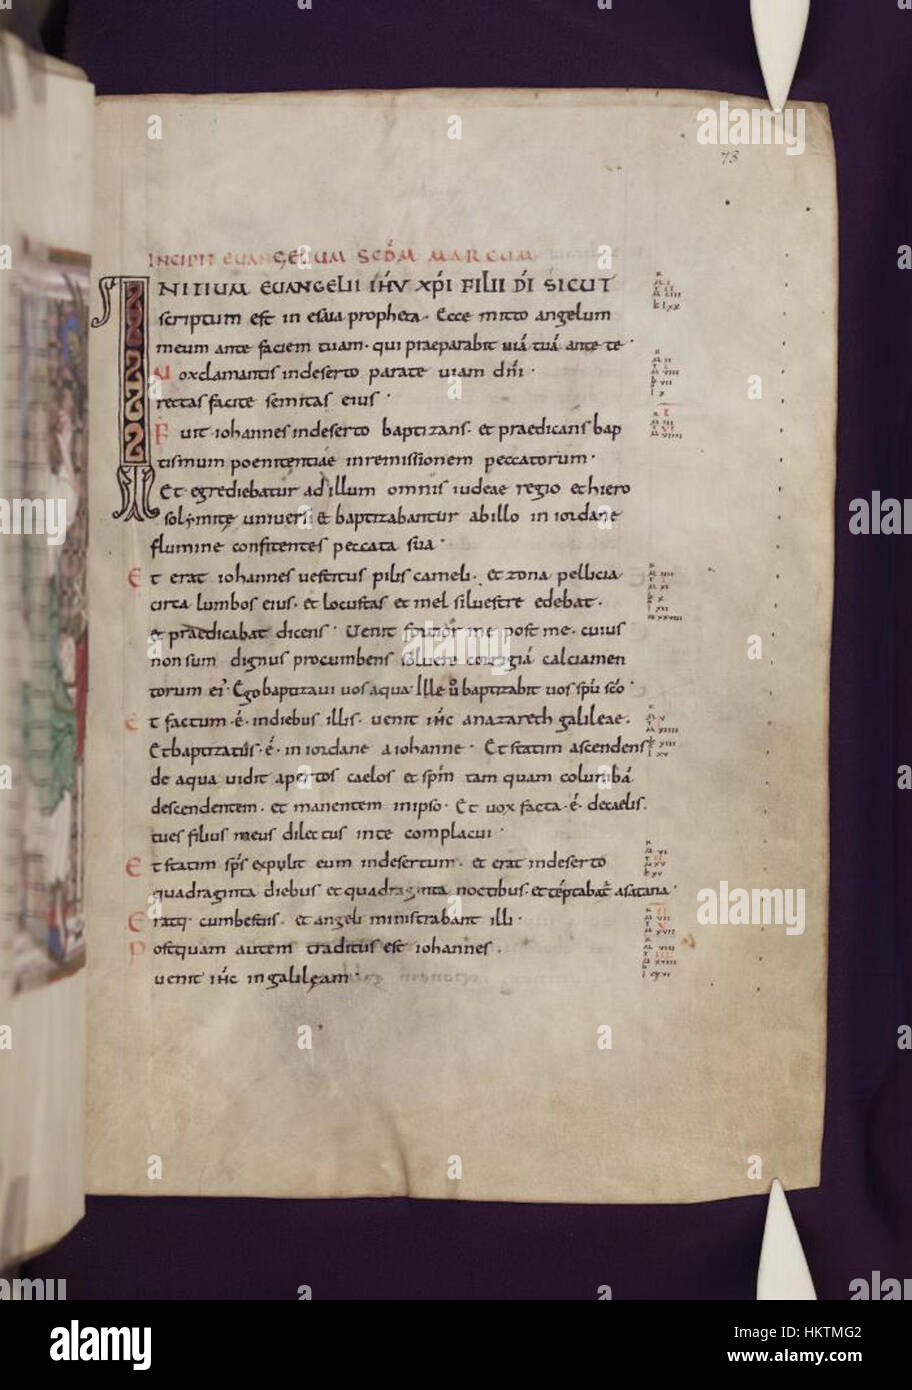 73
INCIPIT EUANGELIUM SCDM MARCUM
INITIUM EUANGELII IHV XPI FILII DI SICUT
scriptum est in esaia propheta · Ecce mitto angelum
meum ante faciem tuam · qui praeparabit uiā tuā ante te ·
Uox clamantis indeserto parate uiam dni ·
rectas facite semitas eius ·
Fuit iohannes indeserto baptizans · et praedicans bap
tismum poenitentiae inremissionem peccatorum ·
Et egrediebatur ad illum omnis iudeae regio et hiero
solymitę uniuersi & baptizabantur abillo in iordane
flumine confitentes peccata sua ·
Et erat iohannes uestitus pilis cameli · et zona pellicia
circa lumbos eius · et locustas et mel siluestre edebat ·
et praedicabat dicens · Uenit fortior me post me · cuius
non sum dignus procumbens soluere corrigiā calciamen
torum ei' · Ego baptizaui uos aqua · Ille ū baptizabit uos spū scō ·
Et factum · ē · indiebus illis · uenit ihc anazareth galileae ·
Et baptizatus · ē · in iordane aiohanne · Et statim ascendens
de aqua uidit apertos caelos et spm tam quam columbā
descendentem · et manentem inipso · Et uox facta · ē · decaelis ·
tu es filius meus dilectus inte complacui ·
Et statim sps expulit eum indesertum · et erat indeserto
quadraginta diebus et quadraginta noctibus · et tēptabat̄ asatana ·
Eratq· cumbestiis · et angeli ministrabant illi ·
Postquam autem traditus est iohannes ·
uenit ihc ingalileam ·
alamy
alamy
Image ID: HKTMG2
www.alamy.com